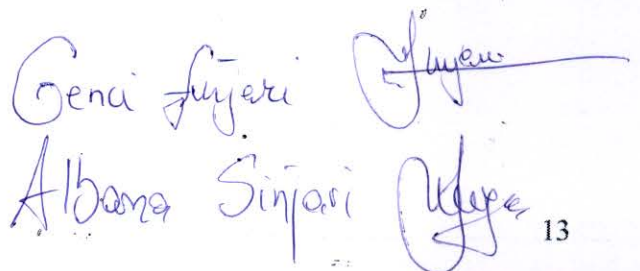 Genci Sinjari
Albana Sinjari
13